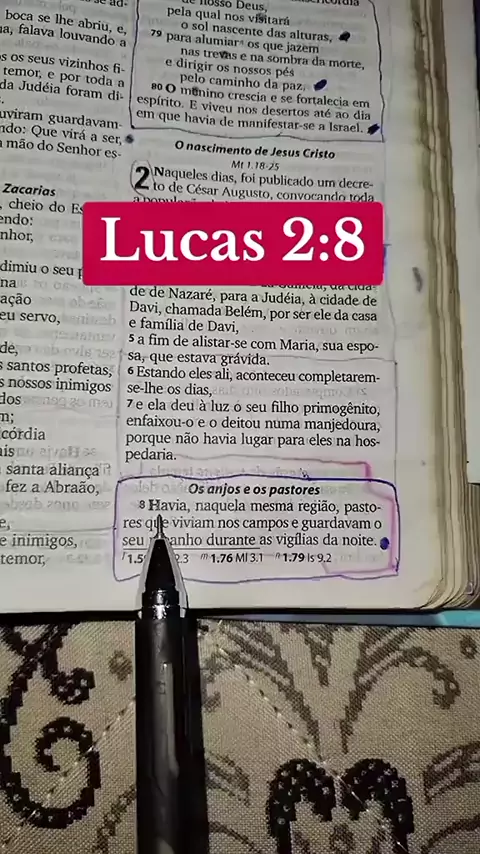 boca se lhe abriu, e,
falava louvando a
os seus vizinhos fi-
temor, e por toda a
da Judéia foram di-
uviram guardavam-
ndo: Que virá a ser,
mão do Senhor es-
Zacarias
cheio do Es
endo:
nhor,
dimiu o seu
na
ação
eu servo,
de,
santos profetas,
s nossos inimigos
dos
m;
córdia
ais
santa aliança
fez a Abraão,
e,
e inimigos,
temor,
de nosso Deus,
pela qual nos visitará
o sol nascente das alturas,
79 para alumiar os que jazem
nas trevas e na sombra da morte,
e dirigir os nossos pés
pelo caminho da paz.
80 O menino crescia e se fortalecia em
espírito. E viveu nos desertos até ao dia
em que havia de manifestar-se a Israel.
O nascimento de Jesus Cristo
Mt 1.18-25
2 Naqueles dias, foi publicado um decre-
to de César Augusto, convocando toda
Lucas 2:8
de de Nazaré, para a Judéia, à cidade de
Davi, chamada Belém, por ser ele da casa
e família de Davi,
5 a fim de alistar-se com Maria, sua espo-
sa, que estava grávida.
6 Estando eles ali, aconteceu completarem-
se-lhe os dias,
7 e ela deu à luz o seu filho primogênito,
enfaixou-o e o deitou numa manjedoura,
porque não havia lugar para eles na hos-
pedaria.
Os anjos e os pastores
8 Havia, naquela mesma região, pasto-
res que viviam nos campos e guardavam o
seu rebanho durante as vigílias da noite.
2.3 m 1.76 Ml 3.1 n 1.79 Is 9.2